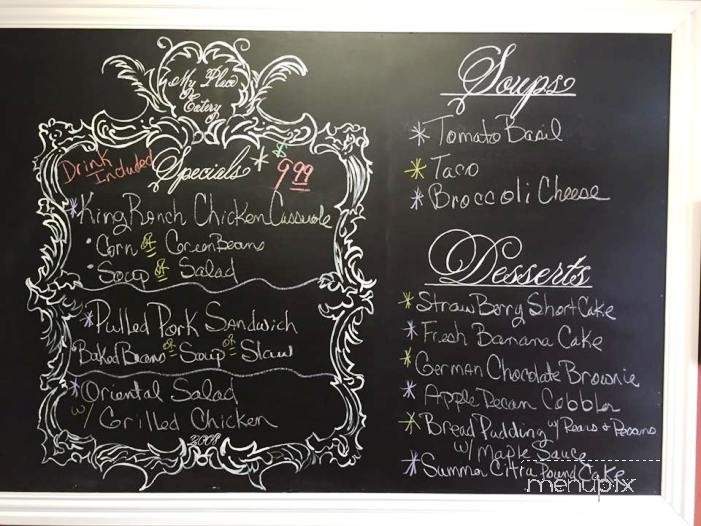 My Place
Eatery
Drink
Included
Specials * $9.99
* King Ranch Chicken Casserole
• Corn or Green Beans
• Soup or Salad
* Pulled Pork Sandwich
• Baked Beans or Soup or Slaw
* Oriental Salad
w/ Grilled Chicken
2008
Soups
* Tomato Basil
* Taco
* Broccoli Cheese
Desserts
* StrawBerry ShortCake
* Fresh Banana Cake
* German Chocolate Brownie
* Apple Pecan Cobbler
* Bread Pudding w/ Pears & Pecans
w/ Maple Sauce
* Summer Citrus Pound Cake
menupix